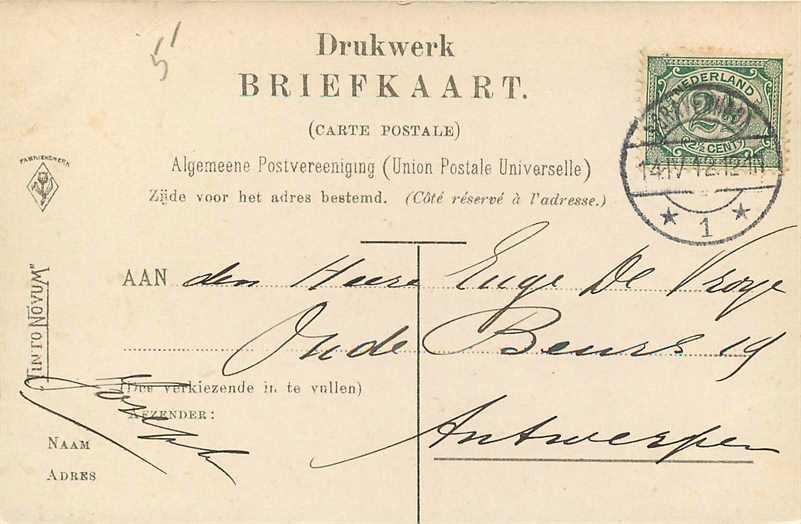 5'
Drukwerk
BRIEFKAART.
(CARTE POSTALE)
Algemeene Postvereeniging (Union Postale Universelle)
Zijde voor het adres bestemd. (Côté réservé à l'adresse.)
NEDERLAND
2½
2½ CENT
14 IV 12
1
FABRIEKSMERK
"TINTO NOVUM"
AAN den Heere Euge De Vroye
Oude Beurs 19
Antwerpen
(Des verkiezende in te vullen)
AFZENDER:
NAAM
ADRES